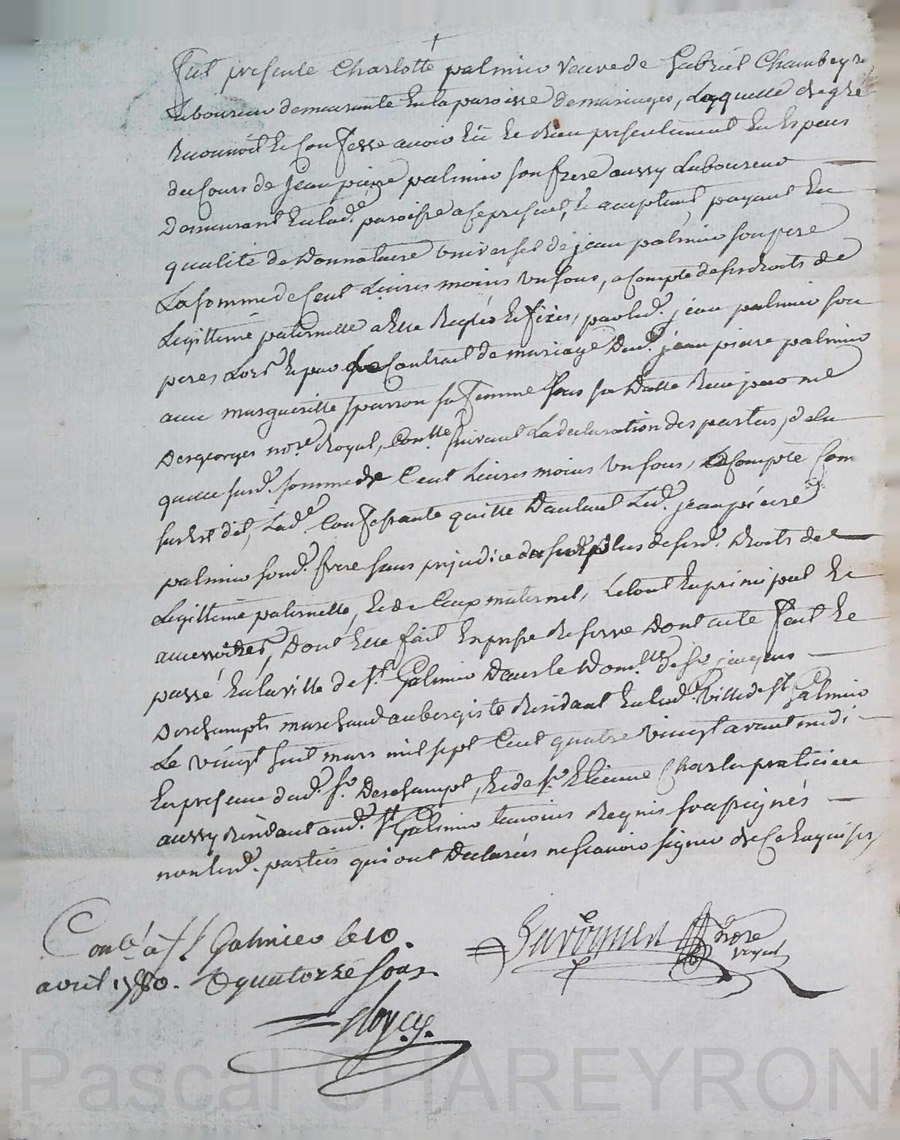 fut presente Charlotte palmier veuve de Gabriel Chambeyr
Laboureur demeurante En la paroisse de maringes, Laquelle de gré
Reconnoit et Confesse avoir Eü et Reçu presentement En Especes
du Cours de Jean pierre palmier son frere aussy Laboureur
Demeurant En lad.e paroisse a ce present, et acceptant payant En
qualité de Donnataire universel de jean palmier son pere
La somme de Cent Livres moins un sous, a Compte de ses droits de
Legittime paternelle a Elle Reglés et fixés, par led. jean palmier son
pere Lors et par le Contrat de mariage dud. jean pierre palmier
avec margueritte sparron sa femme sous sa Datte Reçu par me
Desgeorges no.re Royal, suivant La declaration des parties, de la
quelle susd. somme de Cent Livres moins un sous, a Compte Com
sus Est dit, Lad.e Confessante quitte D'autant Led. jean pierre
palmier sond. frere sans prejudice du surplus de sesd. Droits de
Legittime paternelle, et de Ceux maternel, Le tout En principal et
accessoires, Dont Elle fait Expresse Reserve Dont acte fait et
passé En la ville de St Galmier Dans le Dom.lle de Sr jacques
Deschampts marchand aubergiste Residant En lad. Ville de St Galmier
Le vingt huit mars mil sept Cent quatre vingt avant midi
En presence dud. Sr. Deschampt, et de Sr. Etienne Charles praticien
aussy Residant aud. St Galmier temoins Requis soussignés
non lesd. parties qui ont Declarées ne sçavoir signer de Ce Enquises
Conlé a St Galmier le 10.
avril 1780. R quatorze sous
nore
royal